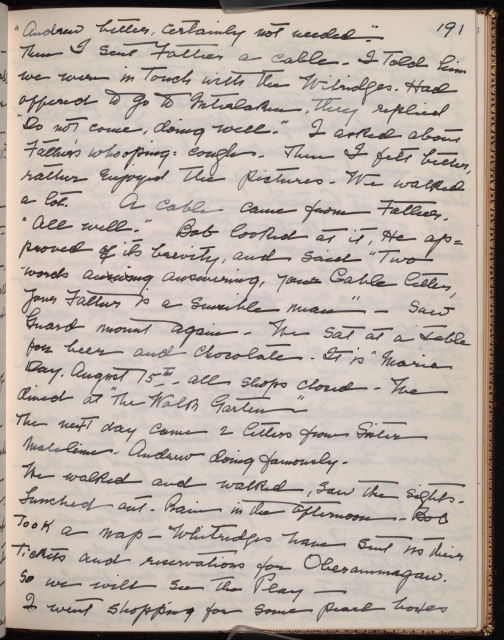 191
"Andrew better, certainly not needed".
Then I sent Father a cable. I Told him
we were in Touch with the Witridges. Had
offered To go To, they replied
"Do not come, doing well." I asked about
Father's whooping-cough. Then I felt better,
rather enjoyed the pictures. We walked
a lot. A cable came from Father.
"All well." Bob looked at it, He ap=
proved of its brevity, and said "Two
words answering, your Cable letter,
your Father is a sensible man" - Saw
Guard mount again. We sat at a Table
for beer and chocolate. It is "Maria
Day. August 15th - all shops closed - We
dined at "The Walth Garten"
The next day came 2 letters from Sister
Madeline. Andrew doing famously.
We walked and walked, saw the sights.
Lunched out. Rain in the afternoon. Bob
Took a nap - Whitridges have sent us their
Tickets and reservations for Oberammagau.
So we will see the Play -
I went shopping for some pearl boxes